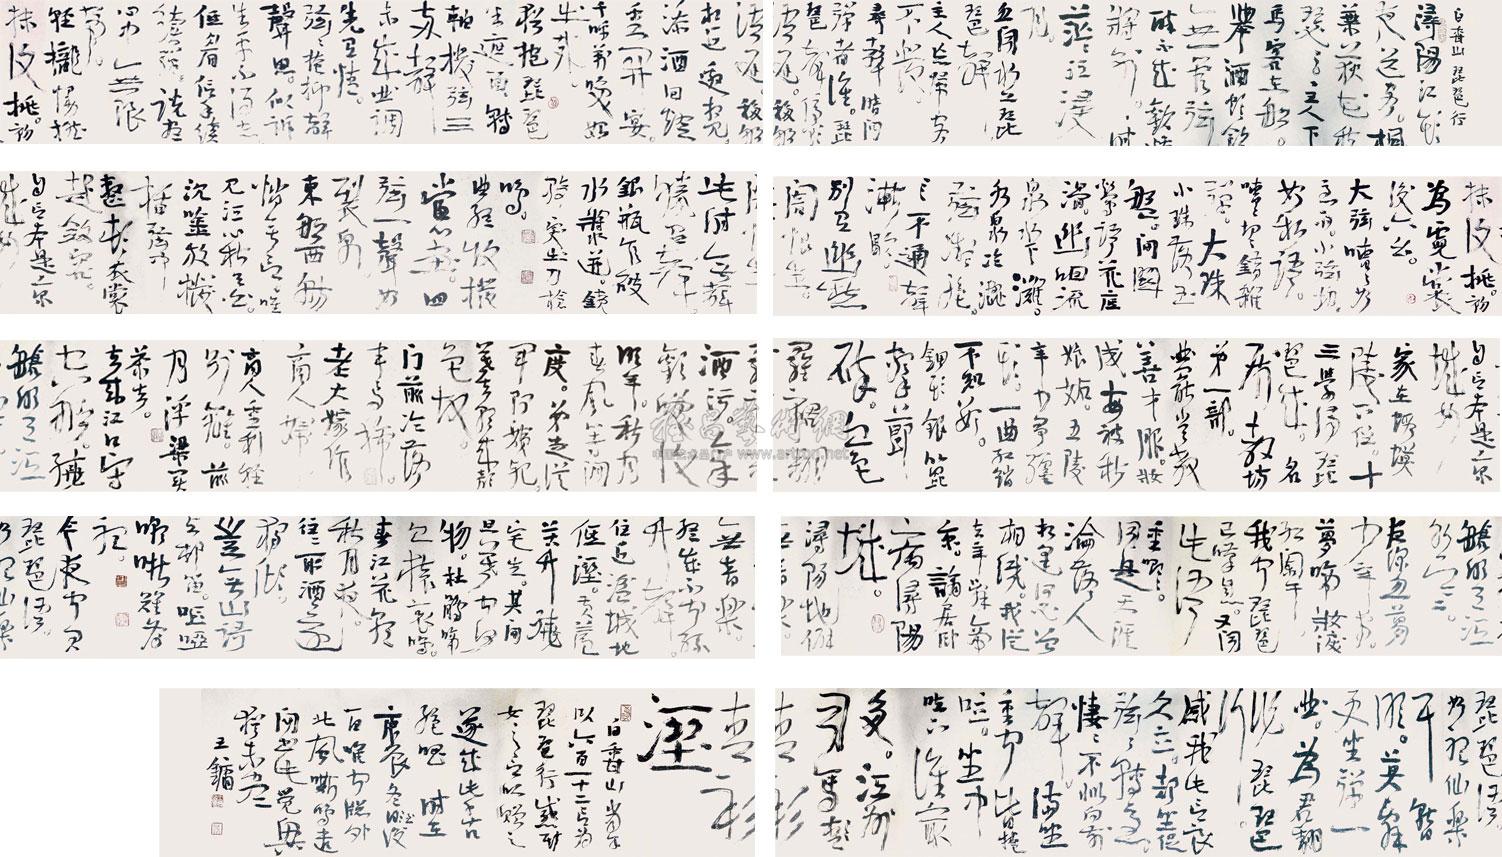 白香山 琵琶行
潯陽江頭
夜送客。楓
葉荻花秋
瑟瑟。主人下
馬客在船。
舉酒欲飲
無管弦。
醉不成歡慘
將別。別時
茫茫江浸
月。
忽聞水上琵
琶聲
主人忘歸客
不發。
尋聲暗問
彈者誰。琵
琶聲停欲
語遲。移船
語遲。移船
相近邀相見。
添酒回燈
重開宴。
千呼萬喚始
出來。
猶抱琵琶
半遮面。轉
軸撥弦三
兩聲
未成曲調
先有情。
弦弦掩抑聲
聲思。似訴
生平不得志
低眉信手續
續彈。說盡
心中無限
事。
輕攏慢撚
抹復挑。初
抹復挑。初
為霓裳
後六幺。
大弦嘈嘈如
急雨。小弦切切
如私語。
嘈嘈切切錯雜
彈。大珠
小珠落玉
盤。間關
鶯語花底
滑。幽咽流
泉水下灘。
水泉冷澀
弦凝絕。
不通聲
漸歇。
別有幽愁
闇恨生。
此時無聲
勝有聲。
銀瓶乍破
水漿迸。鐵
騎突出刀槍
鳴。
曲終收撥
當心畫。四
弦一聲如
裂帛。
東船西舫
悄無言。唯
見江心秋月白。
沉吟放撥
插弦中
整頓衣裳
起斂容。
自言本是京
城女
自言本是京
城女
家在蝦蟆
陵下住。十
三學得琵
琶成。名
屬教坊
第一部。
曲罷常教
善才服。妝
成每被秋
娘妒。五陵
年少爭纏
頭。一曲紅綃
不知數。
鈿頭銀篦
擊節
碎。血色
羅裙翻
酒污。今年
歡笑復
明年。秋月
春風等閒
度。弟走從
軍阿姨死。
暮去朝來顏
色故。
門前冷落
車馬稀。
老大嫁作
商人婦
商人重利輕
別離。前
月浮梁買
茶去。
去來江口守
空船。繞
艙明月江
艙明月江
水寒。
夜深忽夢
少年事。
夢啼妝淚
紅闌干
我聞琵琶
已嘆息。又聞
此語
重唧唧。
同是天涯
淪落人
相逢何必曾
相識。我從
去年辭帝
京。謫居臥
病潯陽
城。
潯陽地僻
無音樂。
終歲不聞絲
竹聲
住近湓城地
低溼。黃蘆
苦竹繞
宅生。其間
旦暮聞何
物。杜鵑啼
血猿哀鳴。
春江花朝
秋月夜。
往往取酒還
獨傾。
豈無山歌
與村笛。嘔啞
嘲哳難為
聽。
今夜聞君
琵琶語。
如聽仙樂
琵琶語。
如聽仙樂
耳暫
明。莫辭
更坐彈一
曲。為君翻
作琵琶
行。
感我此言良
久立。卻坐促
弦弦轉急。
悽悽不似向前
聲 滿座
重聞皆掩
泣。座中
泣下誰最
多。江州
司馬青
青衫
溼
白香山當年
以六百一十二言為
琵琶行感聞
女之言以贈之
遂成此千古
絕唱 時在
庚辰冬晚後
百唯聞牕外
北風嘶鳴遠
聞書此覺興
猶未盡
王鏞